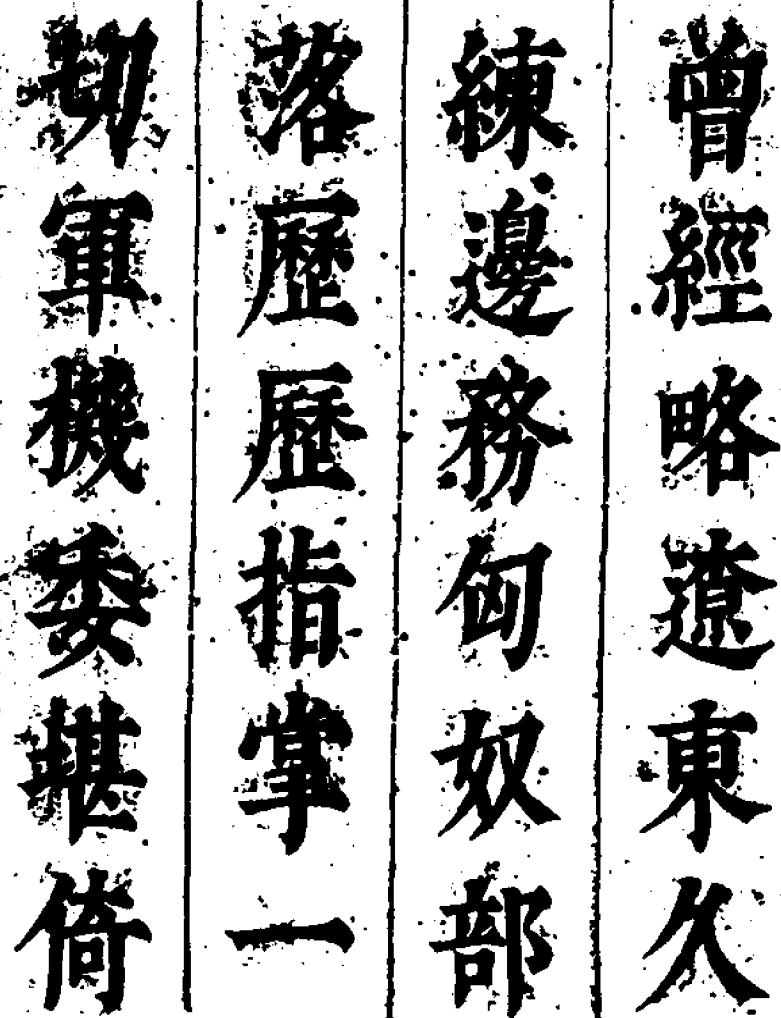 曾經略遼東久
練邊務匈奴部
落歷歷指掌一
切軍機委堪倚